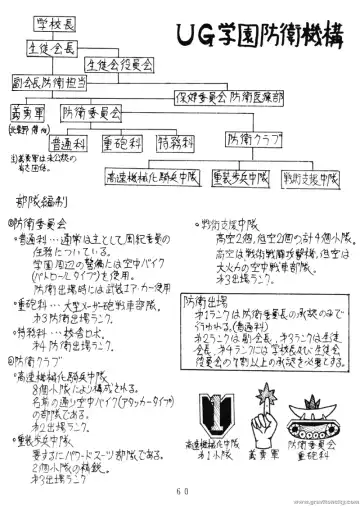 UG学園防衛機構
学校長
生徒会長
生徒会役員会
副会長防衛担当
保健委員会防衛医療部
義勇軍
防衛委員会
防衛クラブ
普通科
重砲科
特務科
注)義勇軍は未公認の
有志団体。
高速機械化騎兵中隊
重装歩兵中隊
戦術支援中隊
部隊編制
◎防衛委員会
・普通科…通常は主として風紀委員の
任務についている。
学園周辺の警備には空中バイク
(パトロールタイプ)を使用。
防衛出場時には武装エアカー使用
・重砲科…大型メーサー砲戦車部隊。
オ3防衛出場ランク。
・特務科…校舎ロボ。
オ4防衛出場ランク。
◎防衛クラブ
・高速機械化騎兵中隊
8個小隊により構成される。
名前の通り空中バイク(アタッカータイプ)
の部隊である。
オ2出場ランク。
・重装歩兵中隊
要するにパワードスーツ部隊である。
2個小隊の編成。
オ3出場ランク。
・戦術支援中隊
高空2個,低空2個の計4個小隊。
高空は戦術戦闘攻撃機,低空は
大火力の空中戦車部隊。
オ3出場ランク。
防衛出場
オ1ランクは防衛委員長の承認のみで
行われる。(普通科)
オ2ランクは副会長,オ3ランクは生徒
会長,オ4ランクには学校長及び生徒会
役員会の7割以上の承認を必要とする。
高速機械化中隊
オ1小隊
義勇軍
防衛委員会
重砲科
60